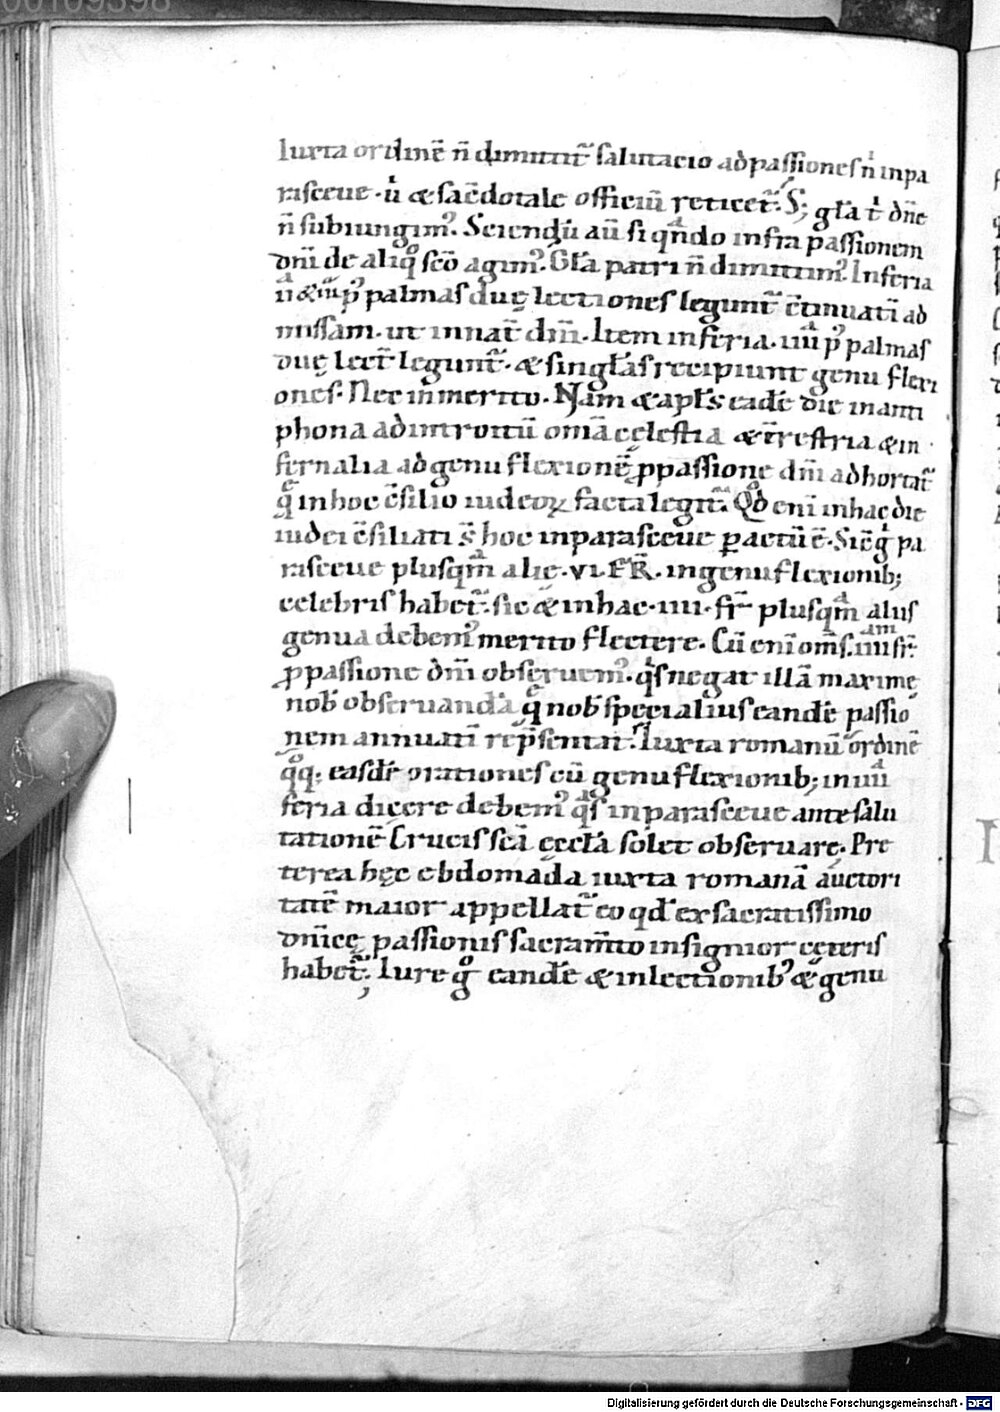 00109398
Iuxta ordinē n̄ dimittit᷑ salutacio ad passiones ni̾ in pa
rasceue · u̾ & sac̄dotale officiū reticet᷑. S; gl̄a t̾ dn̄e
n̄ subiungim᷒. Sciendū aū si qn̄do infra passionem
dn̄i de aliqͦ sc̄o agim᷒. Gl̄a patri n̄ dimittim᷒. In feria
& p᷒ palmas duę lectiones legunt᷑ c̄tinuati ad
missam. ut in nat̄ dn̄i. Item in feria. IIII p᷒ palmas
duę lect̄ legunt᷑. & singl̄as recipiunt genu flexi
ones. Nec inmerito. Nam & apl̄s eadē die in anti
phona ad introitū om̄a cęlestia & t̄restria & in
fernalia ad genu flexionē ꝓ passione dn̄i adhortat᷑
q̄ in hoc c̄silio iudeoꝝ facta legit᷑. Qd̄ enī in hac die
iudei c̄siliati s̄ hoc in parasceue ꝑactū ē. Sic̄ g̾ pa
rasceue plusqm̄ alię · VI · FR̄ · in genu flexionib;
celebris habet᷑. sic & in hac · IIII · fr̄ plusqm̄ aliis
genua debem᷒ merito flectere. Cū enī om̄s. IIII am fr̄
ꝓ passione dn̄i obseruem᷒. qi̾s negat illā maximę
nob̄ obseruandā q̄ nob̄ specialius eandē passio
nem annuatī rep̄sentat. Iuxta romanū ordinē
qͦq; easdē orationes cū genu flexionib; in IIII
feria dicere debem᷒ qᷓs in parasceue ante salu
tationē Crucis sc̄a ęccl̄a solet obseruare. Pre
terea hęc ebdomada iuxta romanā auctori
tatē maior appellat᷑ eo qd̄ ex sacratissimo
dn̄icę passionis sacram̄to insignior ceteris
habet᷑; Iure gͦ eandē & in lectionib᷒ & genu
Digitalisierung gefördert durch die Deutsche Forschungsgemeinschaft - DFG